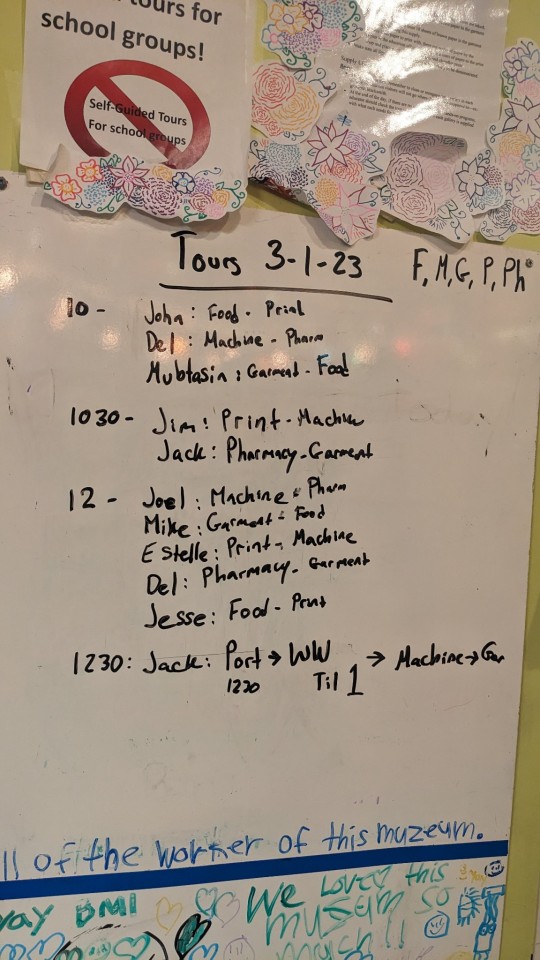 tours for
school groups!
Self-Guided Tours
For school groups
Tours 3-1-23
F, M, G, P, Ph
10 - John: Food - Print
Del: Machine - Pharm
Mubtasin: Garment - Food
1030 - Jim: Print - Machine
Jack: Pharmacy - Garment
12 - Joel: Machine - Pharm
Mike: Garment - Food
Estelle: Print - Machine
Del: Pharmacy - Garment
Jesse: Food - Print
1230: Jack: Port → WW → Machine → Gar
1230 Til 1
ll of the worker of this muzeum.
yay DMI
We Loved this
museum so
much!!